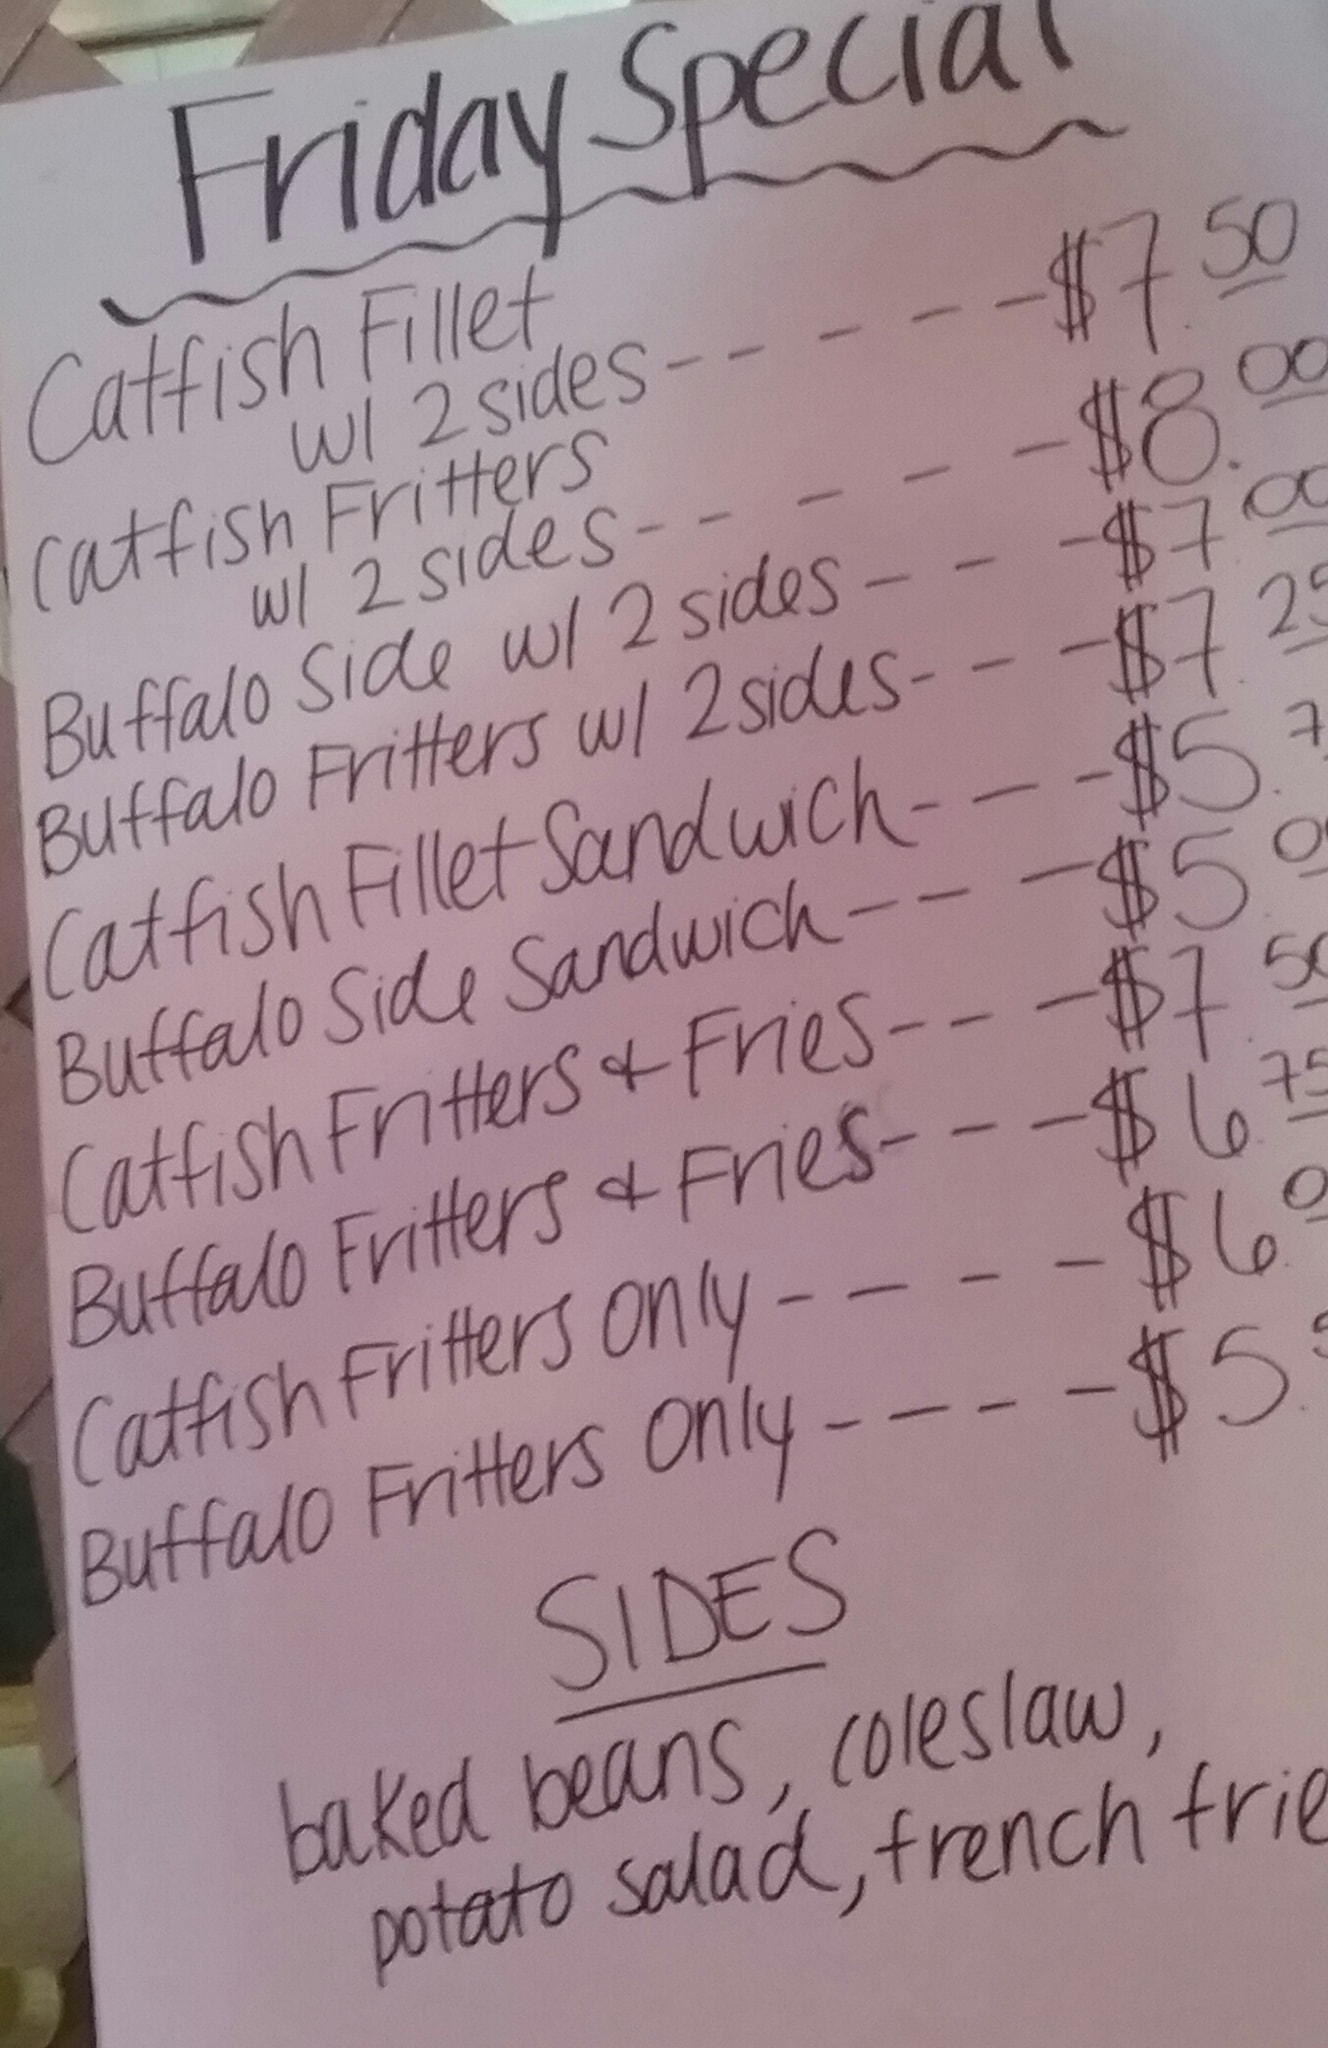 Friday Special
Catfish Fillet
w/ 2 sides-- - - - $7.50
Catfish Fritters
w/ 2 sides-- - - - $8.00
Buffalo Side w/ 2 sides- - - $7.00
Buffalo Fritters w/ 2 sides- - - $7.25
Catfish Fillet Sandwich- - - $5.7
Buffalo Side Sandwich-- - - $5.0
Catfish Fritters & Fries-- - - $7.50
Buffalo Fritters & Fries- - - - $6.75
Catfish Fritters Only- - - - - $6.0
Buffalo Fritters Only- - - - - $5.
SIDES
baked beans, coleslaw,
potato salad, french frie